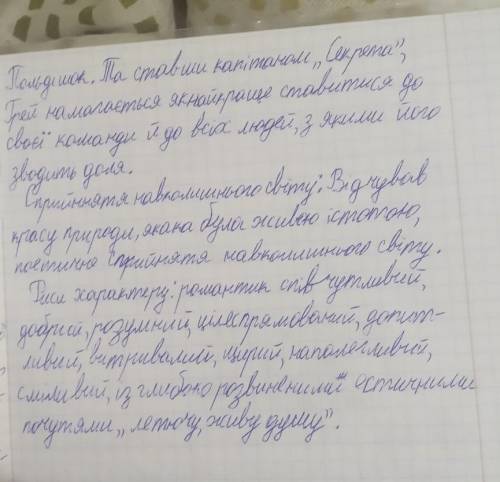 Польдішок. Та ставши капітаном „Секрета",
Грей намагається якнайкраще ставитися до
своєї команди й до всіх людей, з якими його
зводить доля.
Сприйняття навколишнього світу: Відчував
красу природи, яка на була живою істотою,
поетично сприйняття навколишнього світу.
Риси характеру: романтик співчутливий,
добрий, розумний, цілеспрямований, допит-
ливий, витривалий, щирий, наполегливий,
сміливий, із глибоко розвиненими естичними
почутями „летючу, живу душу".